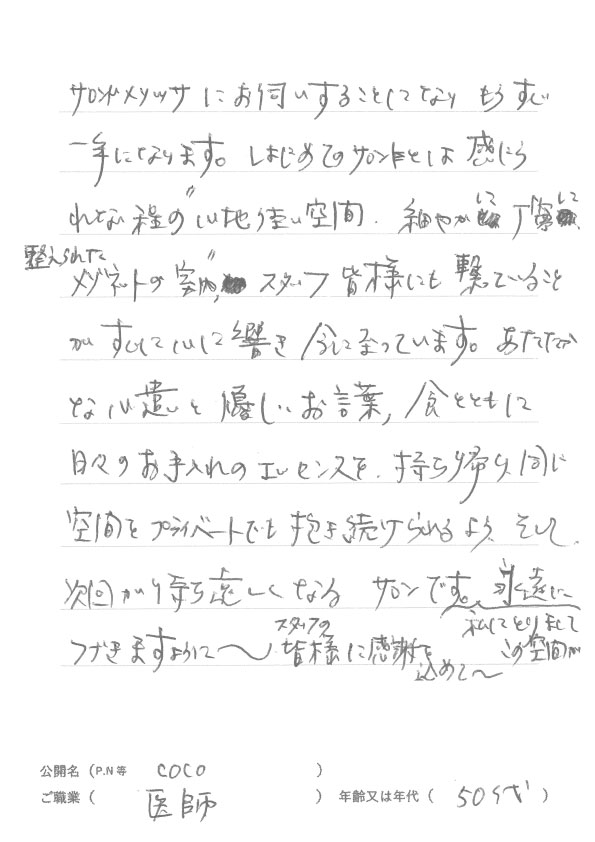 サロンドメリッサにお伺いすることしてなり もうすぐ
一年になります。はじめてのサロンとは 感じら
れない程の"心地佳い空間. 細やかにして丁寧にして
整えられた
メゾネットの室内" スタッフ皆様にも繋っていること
がすべて心に響き 今に至っています。あたたか
な心遣いと優しいお言葉, 食とともに
日々のお手入れのエッセンスを、持ち帰り、同じ
空間をプライベートでも抱き続けられるよう、そして、
次回が待ち遠しくなる サロンです。永遠に
つづきますように〜 スタッフの皆様に感謝を込めて〜
私にとりまして
この空間が
公開名（P.N等 COCO ）
ご職業（ 医師 ） 年齢又は年代（ 50代 ）